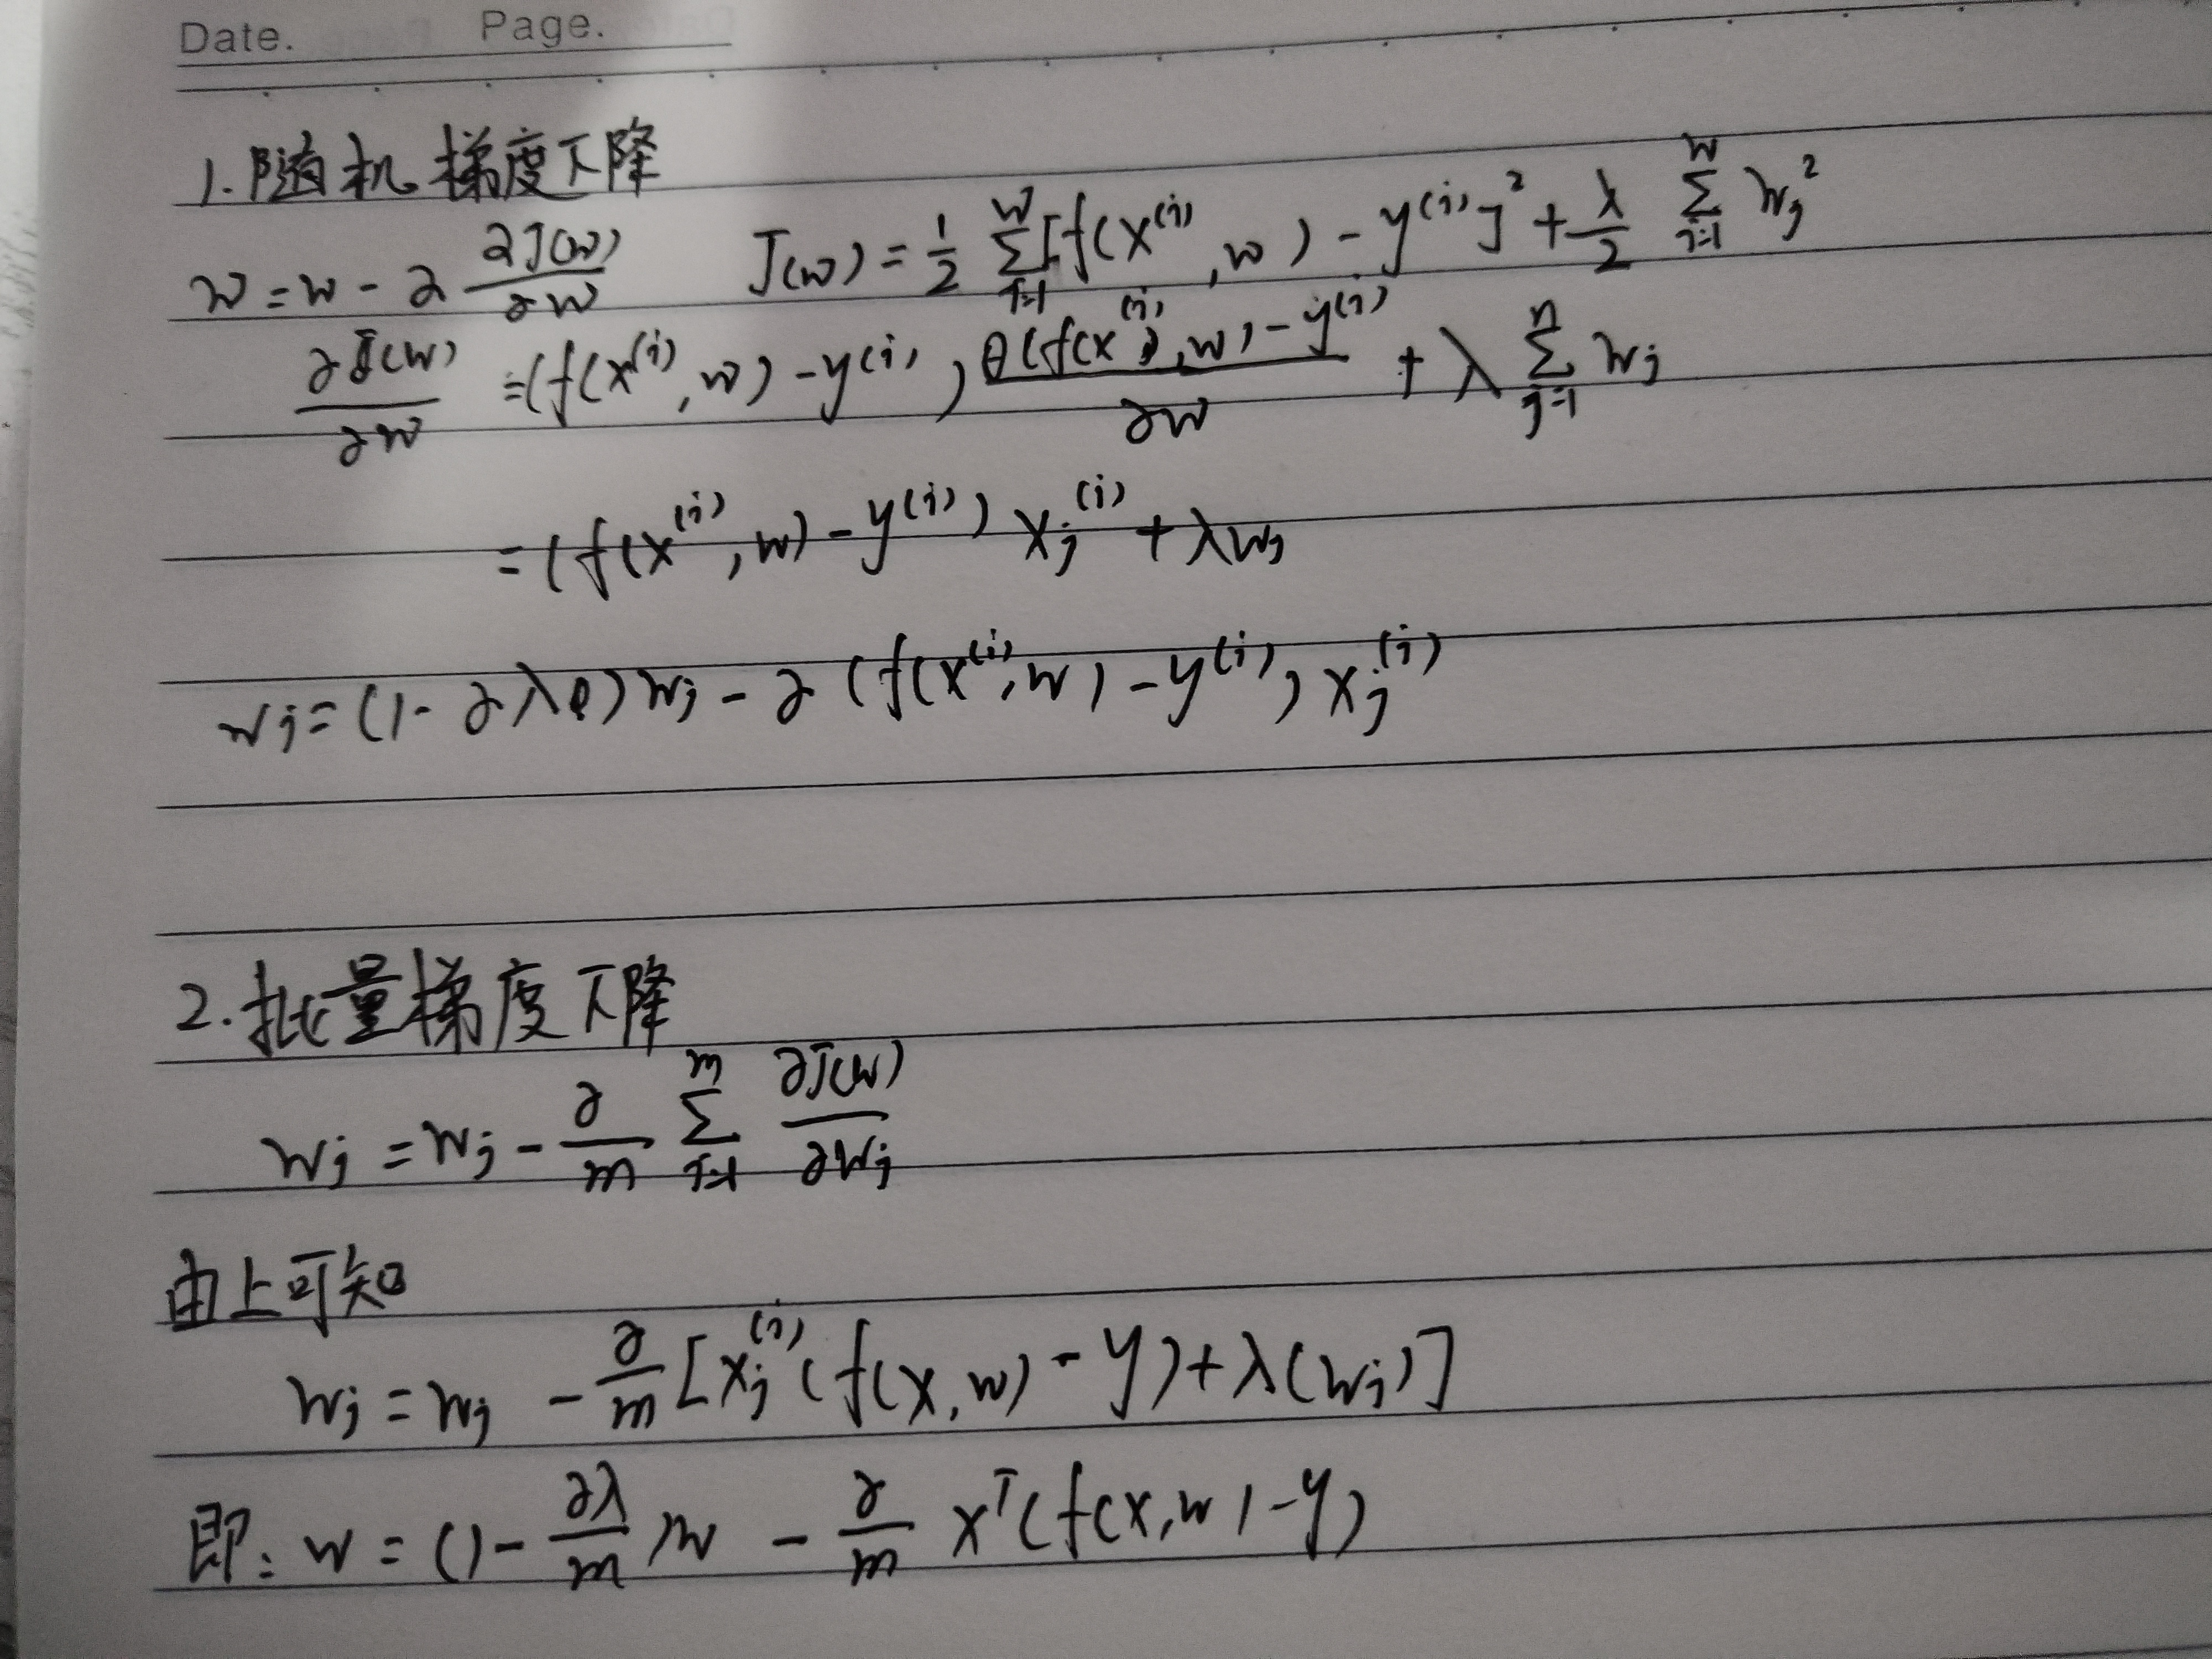 Date. Page.
1.随机梯度下降
w = w - α ∂J(w)/∂w J(w) = 1/2 Σ_{i=1}^{w} [f(x^(i), w) - y^(i)]² + λ/2 Σ_{j=1}^{w} w_j²
∂J(w)/∂w = (f(x^(i), w) - y^(i)) ∂(f(x^(i), w) - y^(i)/∂w + λ Σ_{j=1}^{n} w_j
= (f(x^(i), w) - y^(i)) x_j^(i) + λw_j
w_j = (1 - αλ) w_j - α (f(x^(i), w) - y^(i)) x_j^(i)
2.批量梯度下降
w_j = w_j - α/m Σ_{i=1}^{m} ∂J(w)/∂w_j
由上可知
w_j = w_j - α/m [x_j^(i) (f(x, w) - y) + λ(w_j)]
即: w = (1 - αλ/m) w - α/m x^T (f(x, w) - y)